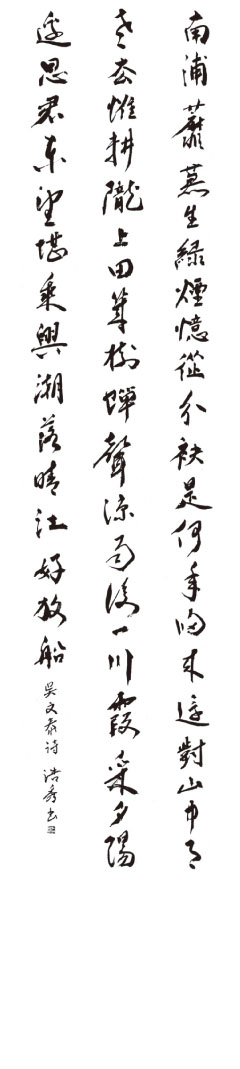 南浦蘼蕪生綠煙憶從分袂是何年歸來還對山中月
老去惟耕隴上田萬樹蟬聲涼雨後一川霞采夕陽
邊思君東望堪乘興潮落晴江好放船
吳文泰诗 浩秀书